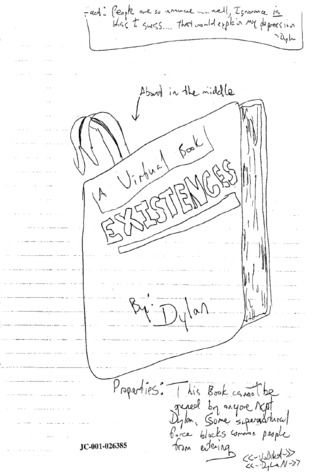 Fact: People are so unaware .... well, Ignorance is
bliss I guess.... that would explain my depression
~Dylan
About in the middle
A Virtual Book
EXISTENCES
By:
Dylan
Properties: This Book cannot be
opened by anyone xept
Dylan, Some supernatural
force blocks common people
from entering
JC-001-026385